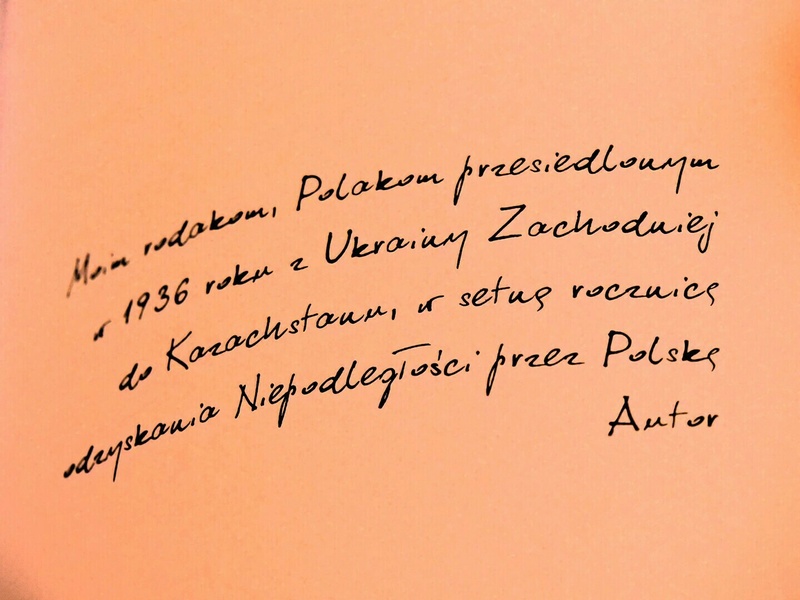 Moim rodakom, Polakom przesiedlonym
w 1936 roku z Ukrainy Zachodniej
do Kazachstanu, w setną rocznicę
odzyskania Niepodległości przez Polskę
Autor